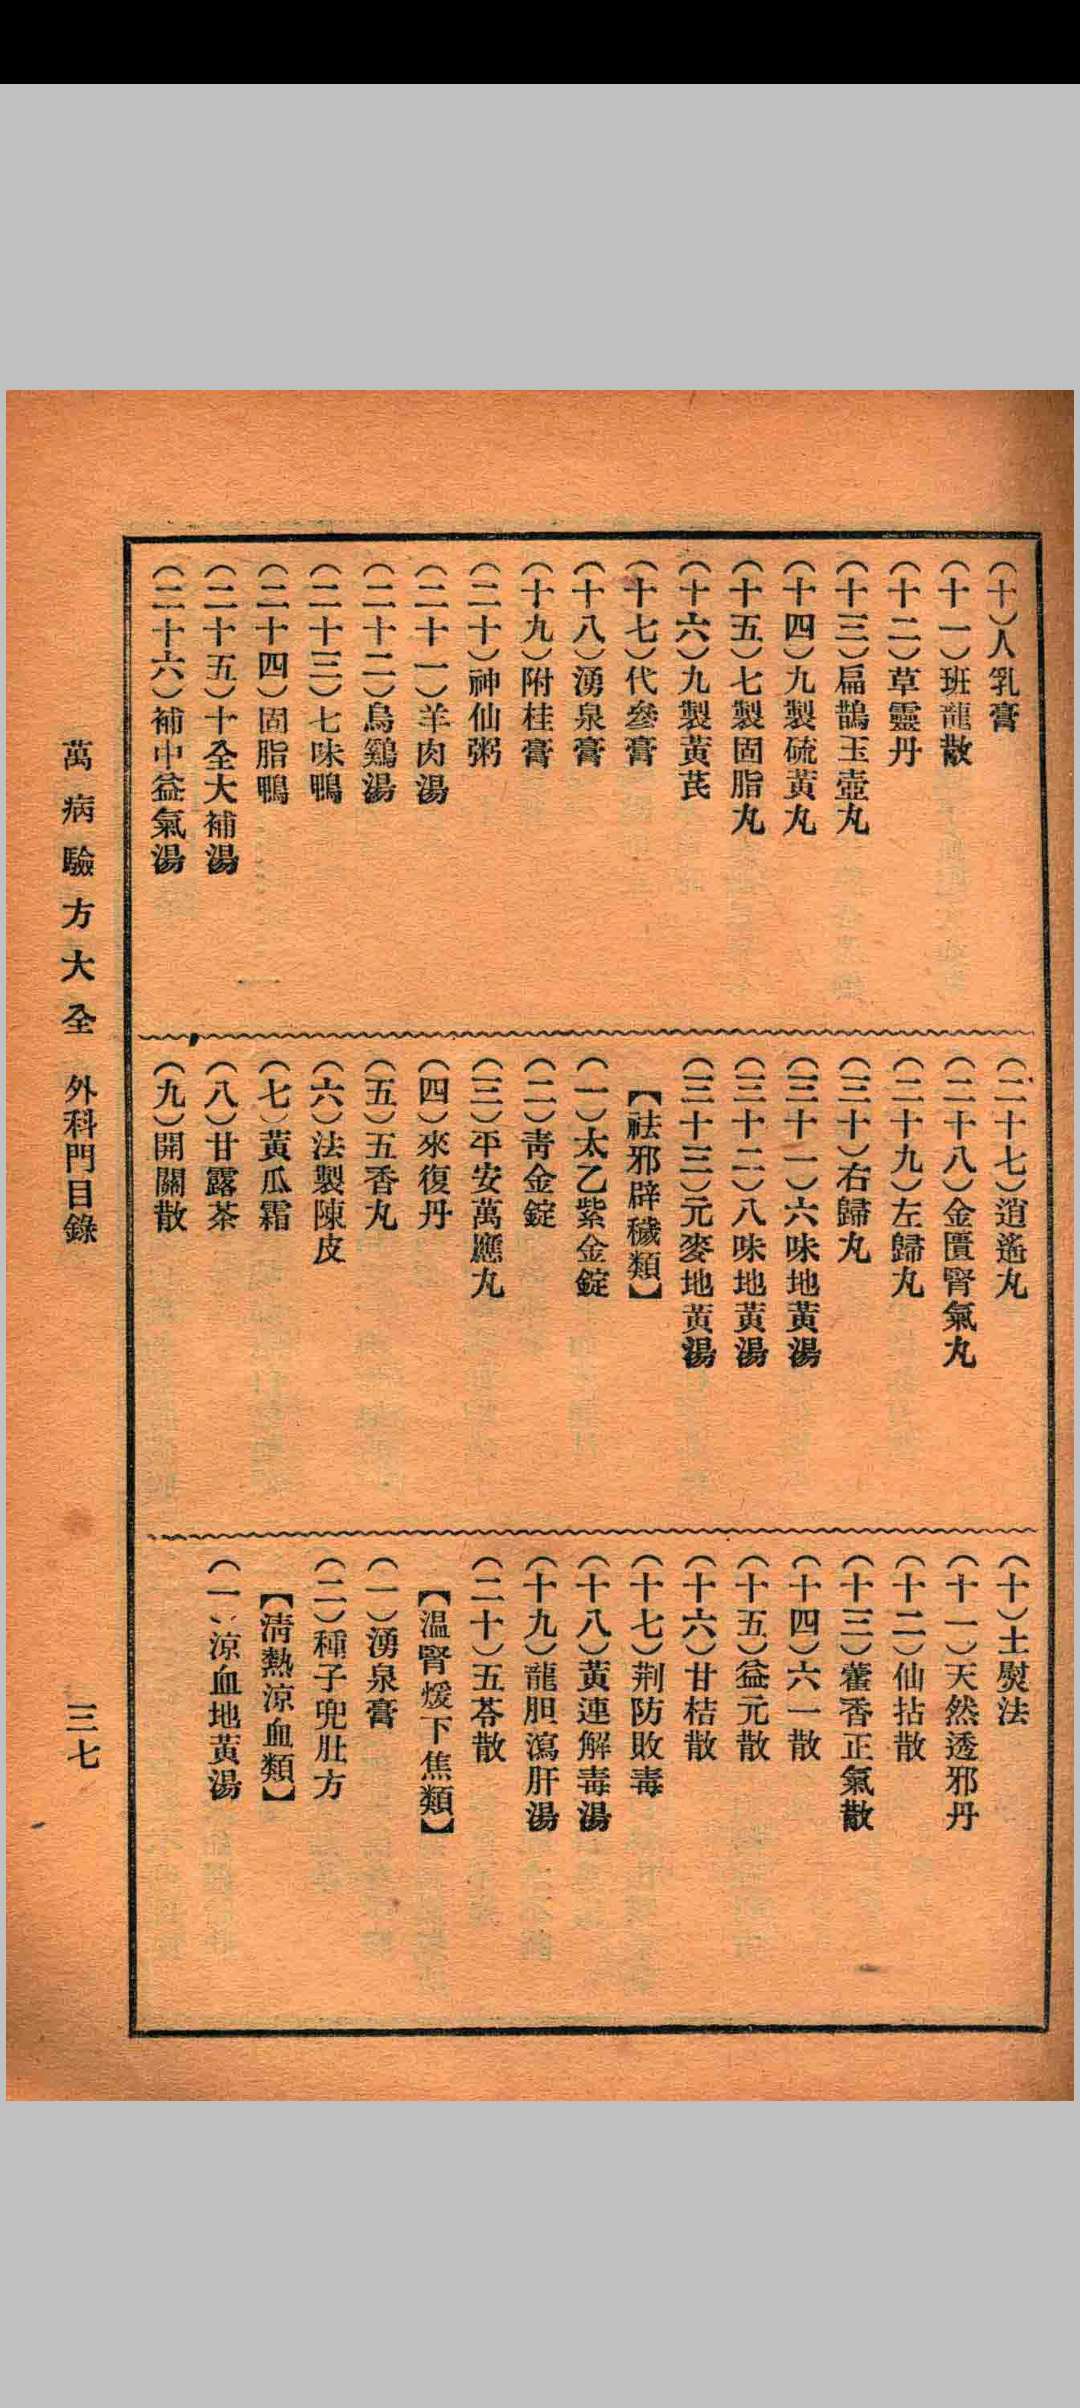 (十)人乳膏
(十一)班龍散
(十二)草靈丹
(十三)扁鵲玉壺丸
(十四)九製硫黃丸
(十五)七製固脂丸
(十六)九製黃芪
(十七)代參膏
(十八)湧泉膏
(十九)附桂膏
(二十)神仙粥
(二十一)羊肉湯
(二十二)烏鷄湯
(二十三)七味鴨
(二十四)固脂鴨
(二十五)十全大補湯
(二十六)補中益氣湯
(二十七)逍遙丸
(二十八)金匱腎氣丸
(二十九)左歸丸
(三十)右歸丸
(三十一)六味地黃湯
(三十二)八味地黃湯
(三十三)元麥地黃湯
【祛邪辟穢類】
(一)太乙紫金錠
(二)靑金錠
(三)平安萬應丸
(四)來復丹
(五)五香丸
(六)法製陳皮
(七)黃瓜霜
(八)甘露茶
(九)開關散
(十)土熨法
(十一)天然透邪丹
(十二)仙拈散
(十三)藿香正氣散
(十四)六一散
(十五)益元散
(十六)甘桔散
(十七)荆防敗毒
(十八)黃連解毒湯
(十九)龍胆瀉肝湯
(二十)五苓散
【溫腎煖下焦類】
(一)湧泉膏
(二)種子兜肚方
【淸熱涼血類】
(一)涼血地黃湯
萬病驗方大全 外科門目錄
三七